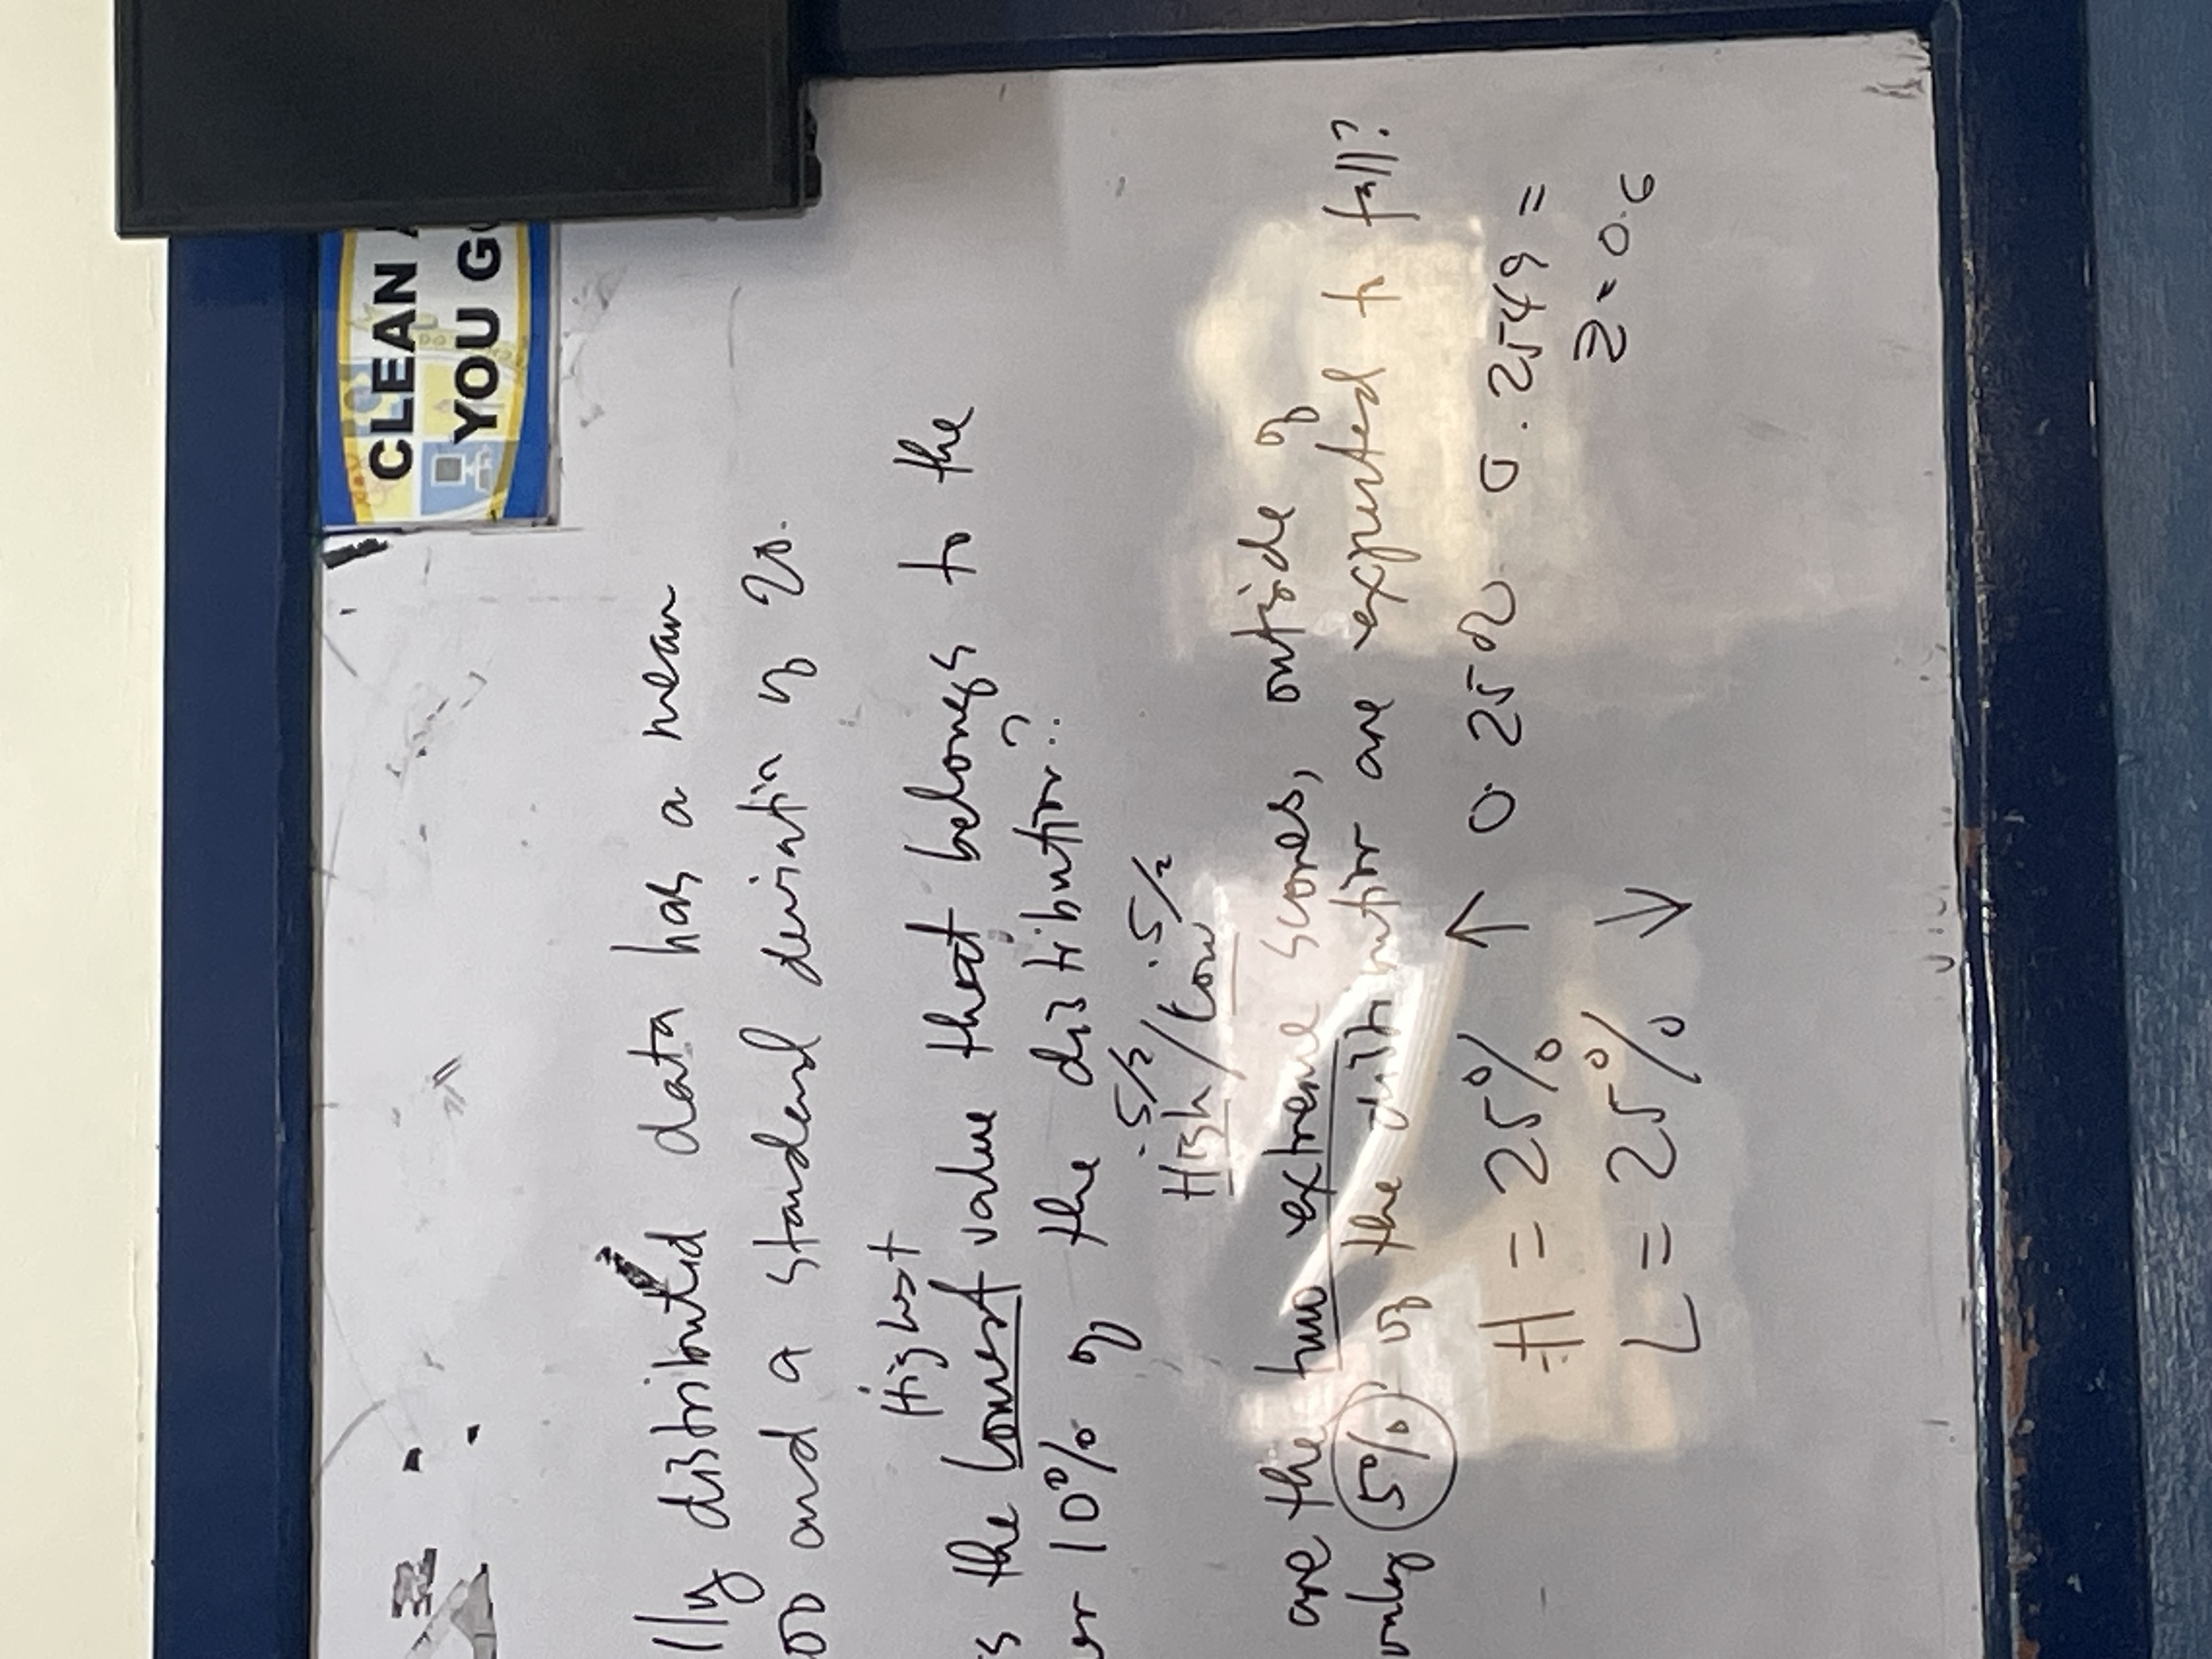 CLEAN A
YOU GO
lly distributed data has a mean
00 and a standard deviation of 20.
Highest
s the Lowest value that belongs to the
er 10% of the distribution?
.5/2 .5/2
High/Low
are the two extreme scores, outside of
only 5% of the distribution are expected to fall?
H = 25% ↑ 0.252 0.2549 =
L = 25% ↓ Z = 0.6